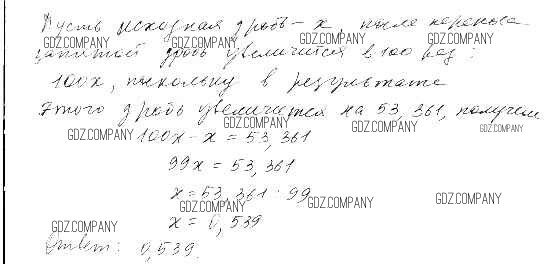 Пусть исходная дробь - x, после переноса
запятой дробь увеличится в 100 раз:
100x, поскольку в результате
этого дробь увеличится на 53,361, получем
100x - x = 53,361
99x = 53,361
x = 53,361 : 99
x = 0,539
Ответ: 0,539.
GDZ.COMPANY
GDZ.COMPANY
GDZ.COMPANY
GDZ.COMPANY
GDZ.COMPANY
GDZ.COMPANY
GDZ.COMPANY
GDZ.COMPANY
GDZ.COMPANY
GDZ.COMPANY
GDZ.COMPANY
GDZ.COMPANY